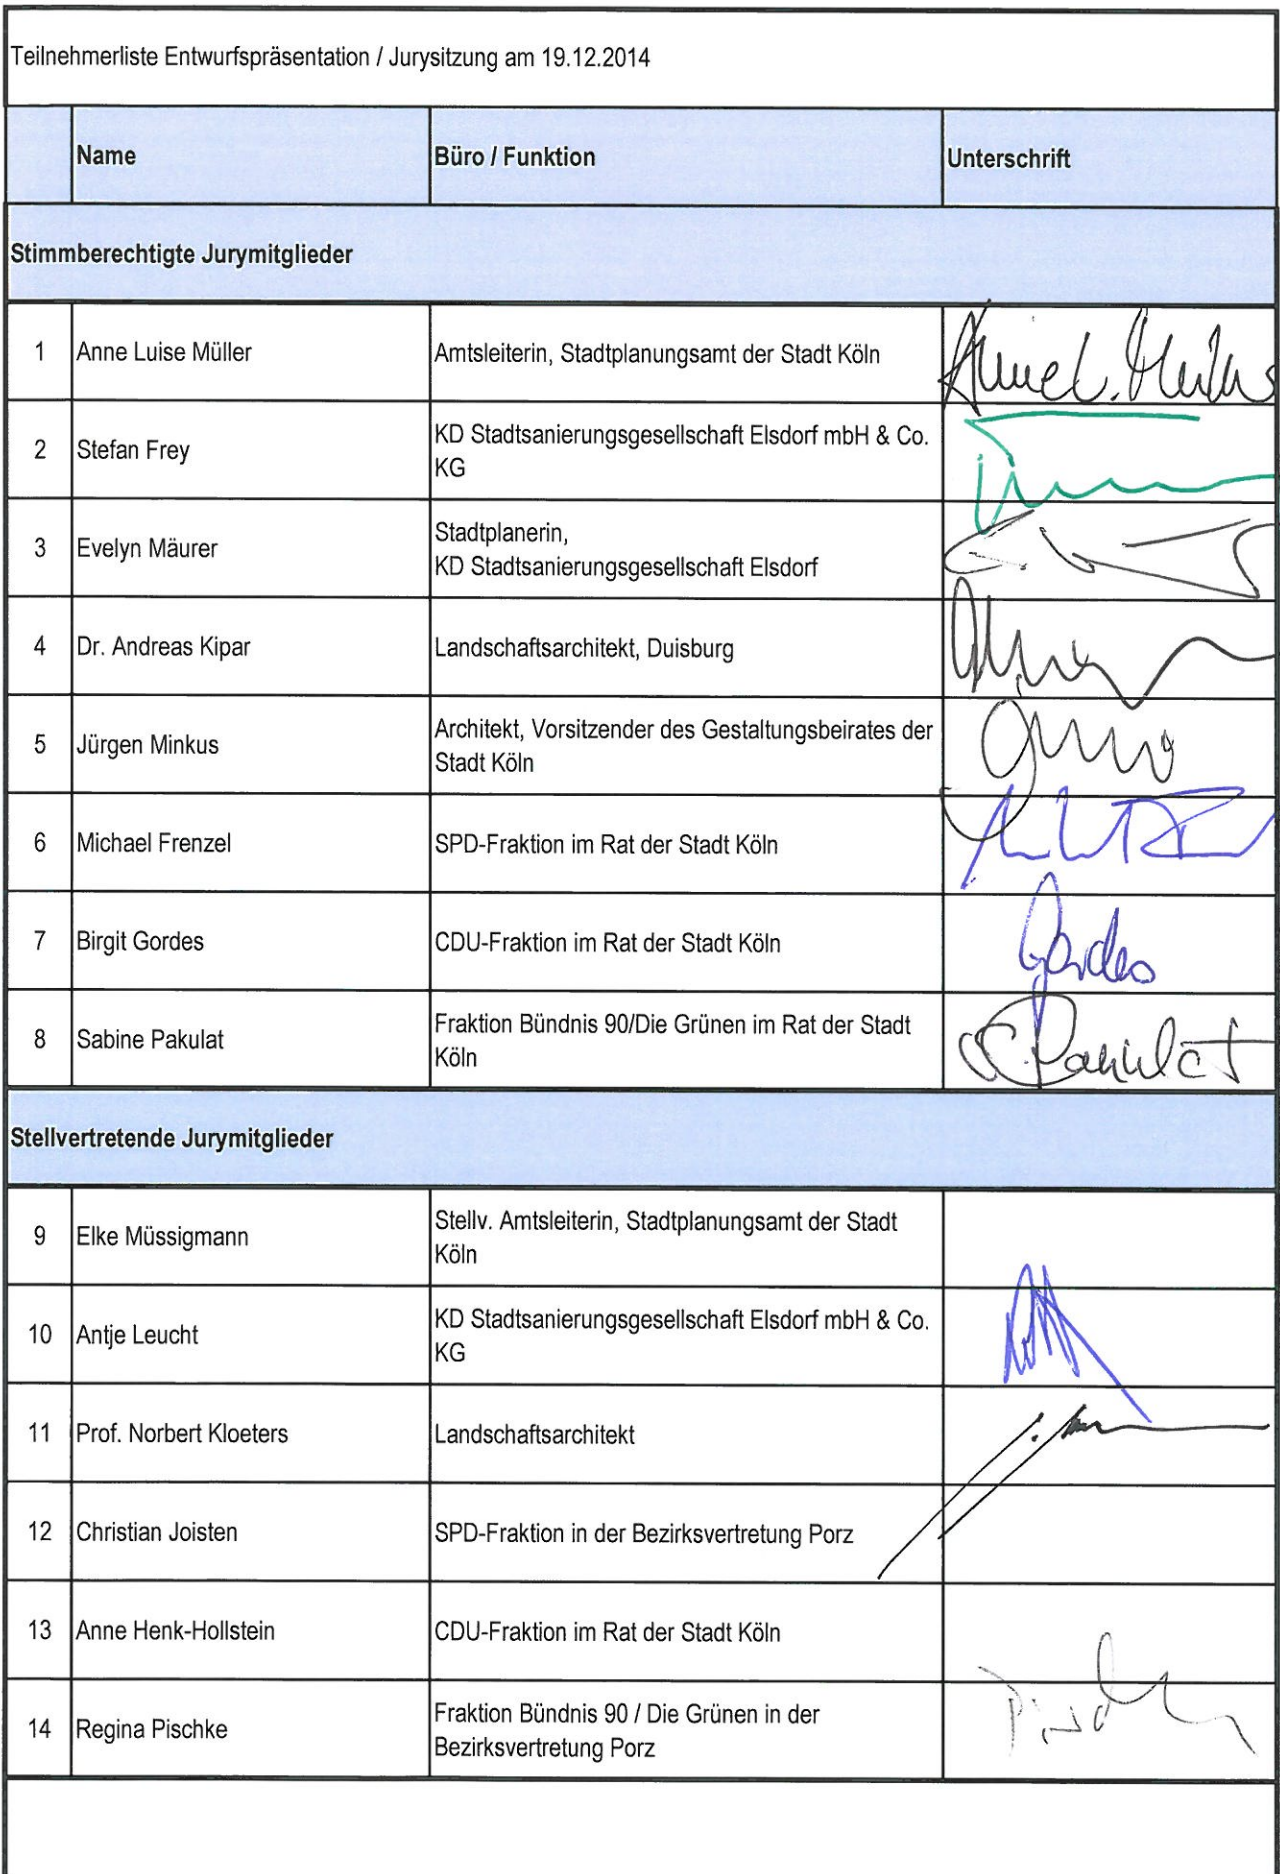 Teilnehmerliste Entwurfspräsentation / Jurysitzung am 19.12.2014
Name Büro / Funktion Unterschrift
Stimmberechtigte Jurymitglieder
1 Anne Luise Müller Amtsleiterin, Stadtplanungsamt der Stadt Köln
2 Stefan Frey KD Stadtsanierungsgesellschaft Elsdorf mbH & Co.
KG
3 Evelyn Mäurer Stadtplanerin,
KD Stadtsanierungsgesellschaft Elsdorf
4 Dr. Andreas Kipar Landschaftsarchitekt, Duisburg
5 Jürgen Minkus Architekt, Vorsitzender des Gestaltungsbeirates der
Stadt Köln
6 Michael Frenzel SPD-Fraktion im Rat der Stadt Köln
7 Birgit Gordes CDU-Fraktion im Rat der Stadt Köln Gordes
8 Sabine Pakulat Fraktion Bündnis 90/Die Grünen im Rat der Stadt
Köln S Pakulat
Stellvertretende Jurymitglieder
9 Elke Müssigmann Stellv. Amtsleiterin, Stadtplanungsamt der Stadt
Köln
10 Antje Leucht KD Stadtsanierungsgesellschaft Elsdorf mbH & Co.
KG
11 Prof. Norbert Kloeters Landschaftsarchitekt
12 Christian Joisten SPD-Fraktion in der Bezirksvertretung Porz
13 Anne Henk-Hollstein CDU-Fraktion im Rat der Stadt Köln
14 Regina Pischke Fraktion Bündnis 90 / Die Grünen in der
Bezirksvertretung Porz